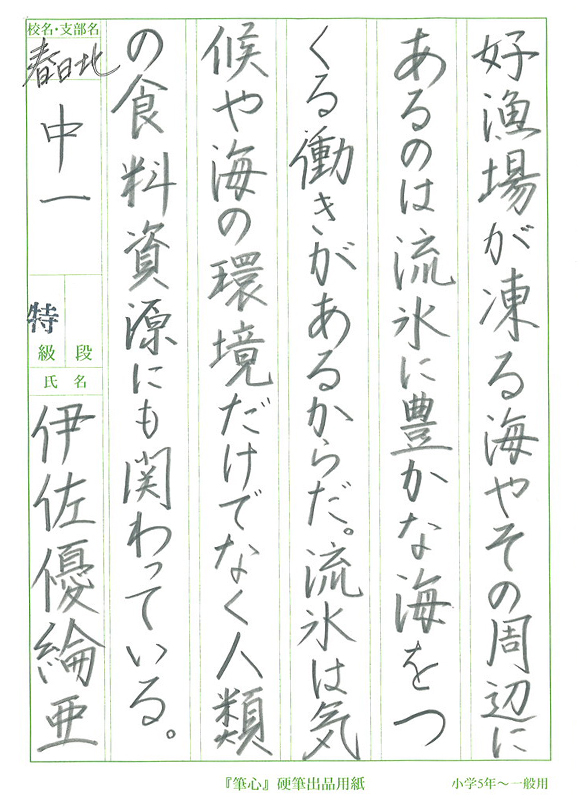 好漁場が凍る海やその周辺に
あるのは流氷に豊かな海をつ
くる働きがあるからだ。流氷は気
候や海の環境だけでなく人類
の食料資源にも関わっている。
校名・支部名
春日北
中一
特
級 段
氏 名
伊佐優綸亜
『筆心』硬筆出品用紙
小学5年〜一般用